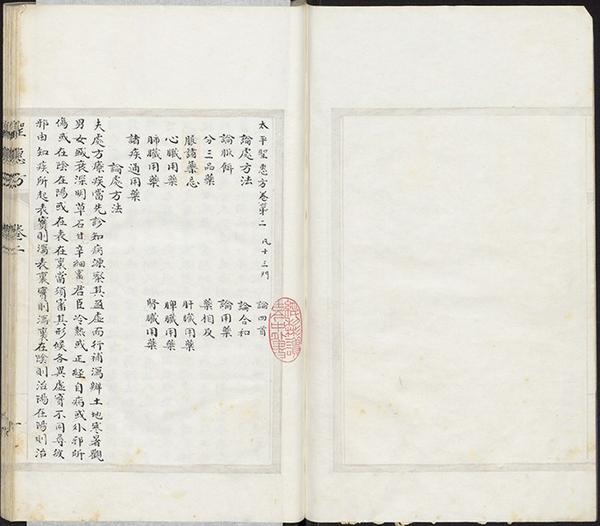 太平聖惠方卷第二 凡十三門 論四首
論處方法 論合和
論服餌 論用藥
分三品藥 藥相反
服諸藥忌 肝臟用藥
心臟用藥 脾臟用藥
肺臟用藥 腎臟用藥
諸疾通用藥
論處方法
夫處方療疾當先診知病源察其盈虛而行補瀉辯土地寒暑觀
男女盛衰深明草石甘辛細審君臣冷熱或正經自病或外邪所
傷或在陰在陽或在表在裏當須審其形候各異虛實不同尋彼
邪由知疾所起表實則瀉表裏實則瀉裏在陰則治陽在陽則治
聖惠方 卷二